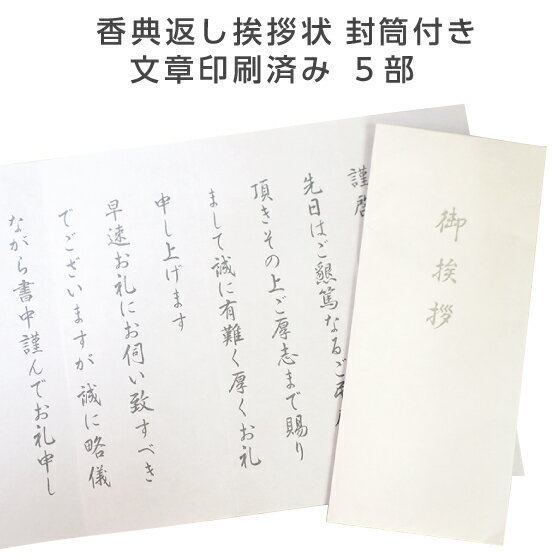 香典返し挨拶状 封筒付き
文章印刷済み 5部
謹啓
先日はご懇篤なるご
頂きその上ご厚志まで賜り
まして誠に有難く厚くお礼
申し上げます
早速お礼にお伺い致すべき
でございますが誠に略儀
ながら書中謹んでお礼申し
御挨拶